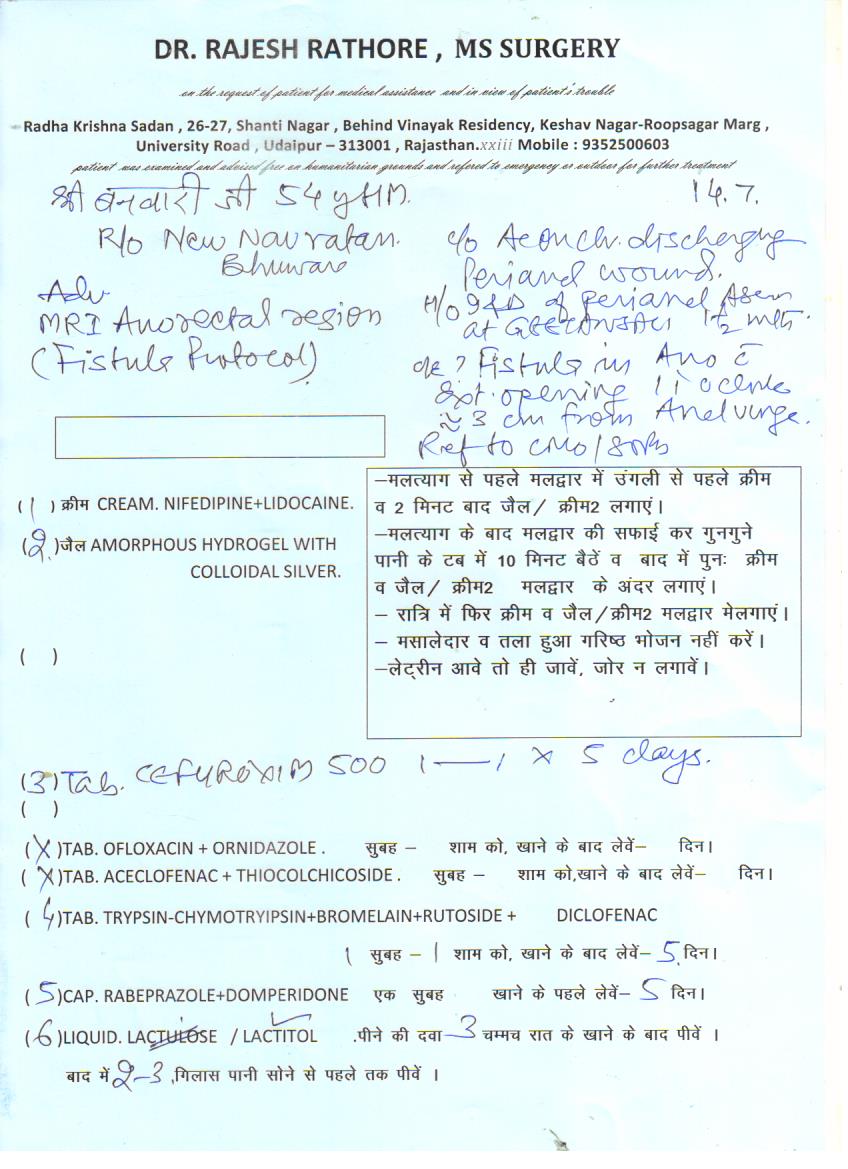 DR. RAJESH RATHORE , MS SURGERY
on the request of patient for medical assistance and in view of patient's trouble
Radha Krishna Sadan , 26-27, Shanti Nagar , Behind Vinayak Residency, Keshav Nagar-Roopsagar Marg ,
University Road , Udaipur – 313001 , Rajasthan.xxiii Mobile : 9352500603
patient was examined and advised free on humanitarian grounds and refered to emergency or outdoor for further treatment
श्री बनवारी जी 54 y HM.
14.7.
R/o New Navratan.
Bhuwana
Adv
MRI Anorectal region
(Fistula Protocol)
c/o Ac on Ch. discharging
Perianal wound.
H/o I&D of perianal
at GEETANJALI 1½
o/e ? Fistula in Ano c̄
Ext. opening 11 o clock
≈ 3 cm from Anal verge.
Ref to CMO/
( 1 ) क्रीम CREAM. NIFEDIPINE+LIDOCAINE.
(2.)जैल AMORPHOUS HYDROGEL WITH
COLLOIDAL SILVER.
( )
–मलत्याग से पहले मलद्वार में उंगली से पहले क्रीम
व 2 मिनट बाद जैल/ क्रीम2 लगाएं।
–मलत्याग के बाद मलद्वार की सफाई कर गुनगुने
पानी के टब में 10 मिनट बैठें व बाद में पुनः क्रीम
व जैल/ क्रीम2 मलद्वार के अंदर लगाएं।
– रात्रि में फिर क्रीम व जैल/क्रीम2 मलद्वार मेलगाएं।
– मसालेदार व तला हुआ गरिष्ठ भोजन नहीं करें।
–लेट्रीन आवे तो ही जावें, जोर न लगावें।
(3) Tab. CEFUROXIM 500 1 — 1 x 5 days.
( )
( X )TAB. OFLOXACIN + ORNIDAZOLE . सुबह – शाम को, खाने के बाद लेवें– दिन।
( X )TAB. ACECLOFENAC + THIOCOLCHICOSIDE . सुबह – शाम को,खाने के बाद लेवें– दिन।
( 4 )TAB. TRYPSIN-CHYMOTRYIPSIN+BROMELAIN+RUTOSIDE + DICLOFENAC
1 सुबह – 1 शाम को, खाने के बाद लेवें– 5 दिन।
( 5 )CAP. RABEPRAZOLE+DOMPERIDONE एक सुबह खाने के पहले लेवें– 5 दिन।
( 6 )LIQUID. LACTULOSE / LACTITOL .पीने की दवा 3 चम्मच रात के खाने के बाद पीवें ।
बाद में 2-3 ,गिलास पानी सोने से पहले तक पीवें ।